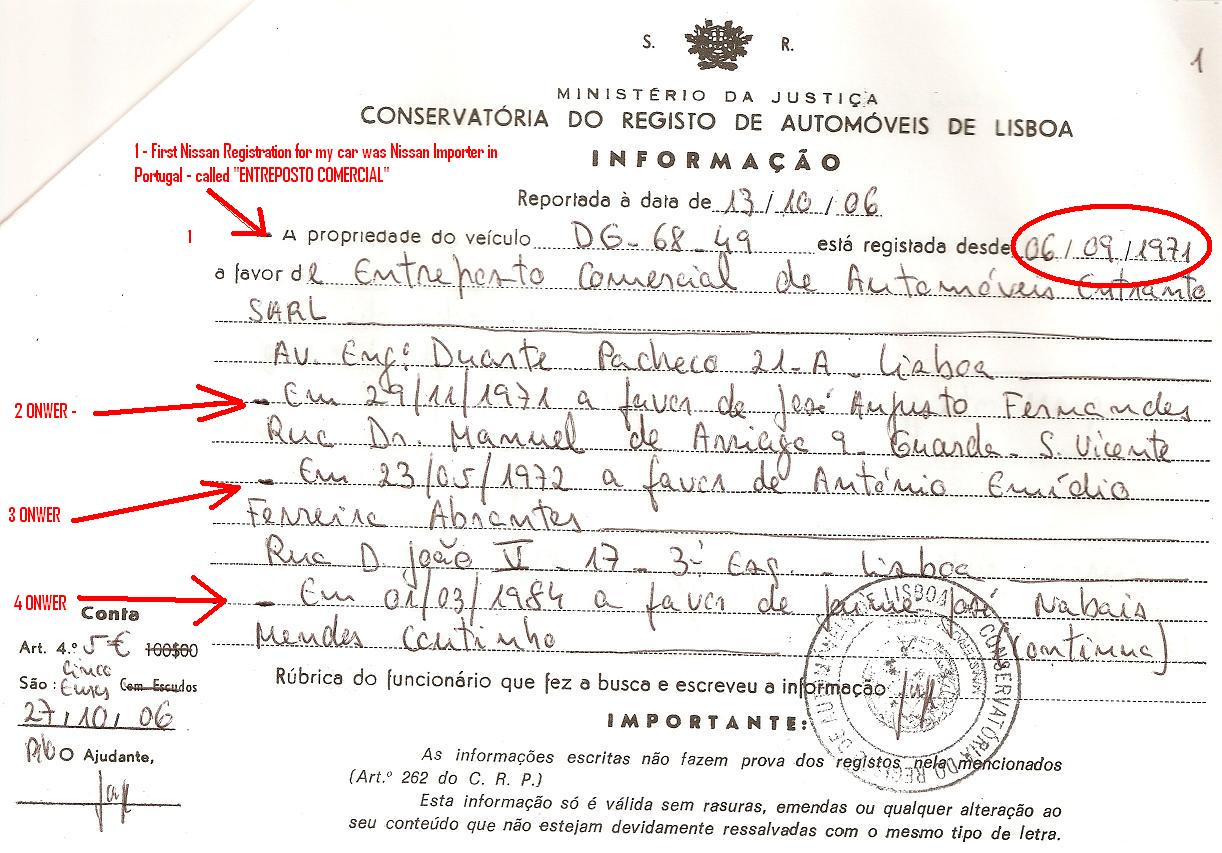 S. R.
1
MINISTÉRIO DA JUSTIÇA
CONSERVATÓRIA DO REGISTO DE AUTOMÓVEIS DE LISBOA
INFORMAÇÃO
1 - First Nissan Registration for my car was Nissan Importer in
Portugal - called "ENTREPOSTO COMERCIAL"
Reportada à data de 13/10/06
1 - A propriedade do veículo DG-68-49 está registada desde 06/09/1971
a favor de Entreposto Comercial de Automóveis
SARL
Av. Engº Duarte Pacheco 21-A - Lisboa
2 ONWER -
- Em 29/11/1971 a favor de José Augusto Fernandes
Rua Dr. Manuel de Arriaga 9 - Guarda - S. Vicente
- Em 23/05/1972 a favor de António Emídio
3 ONWER
Ferreira Abrantes
Rua D. João V - 17 - 3º Esq. - Lisboa
4 ONWER
- Em 01/03/1984 a favor de Jaime José Nabais
Mendes Coutinho (continua)
Conta
Art. 4.º 5 € 100$00
São: Cinco Euros Cem Escudos
27/10/06
O Ajudante,
Rúbrica do funcionário que fez a busca e escreveu a informação
IMPORTANTE:
As informações escritas não fazem prova dos registos nela mencionados
(Art.º 262 do C. R. P.)
Esta informação só é válida sem rasuras, emendas ou qualquer alteração ao
seu conteúdo que não estejam devidamente ressalvadas com o mesmo tipo de letra.